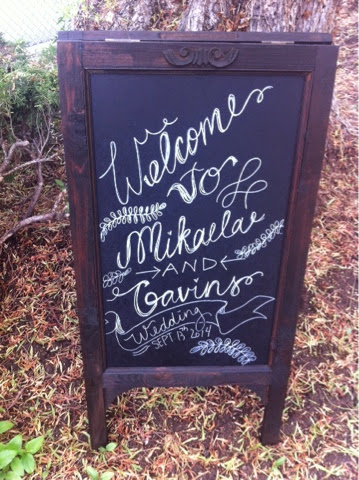 Welcome
To
Mikaela
AND
Gavins
Wedding
SEPT 13th 2014